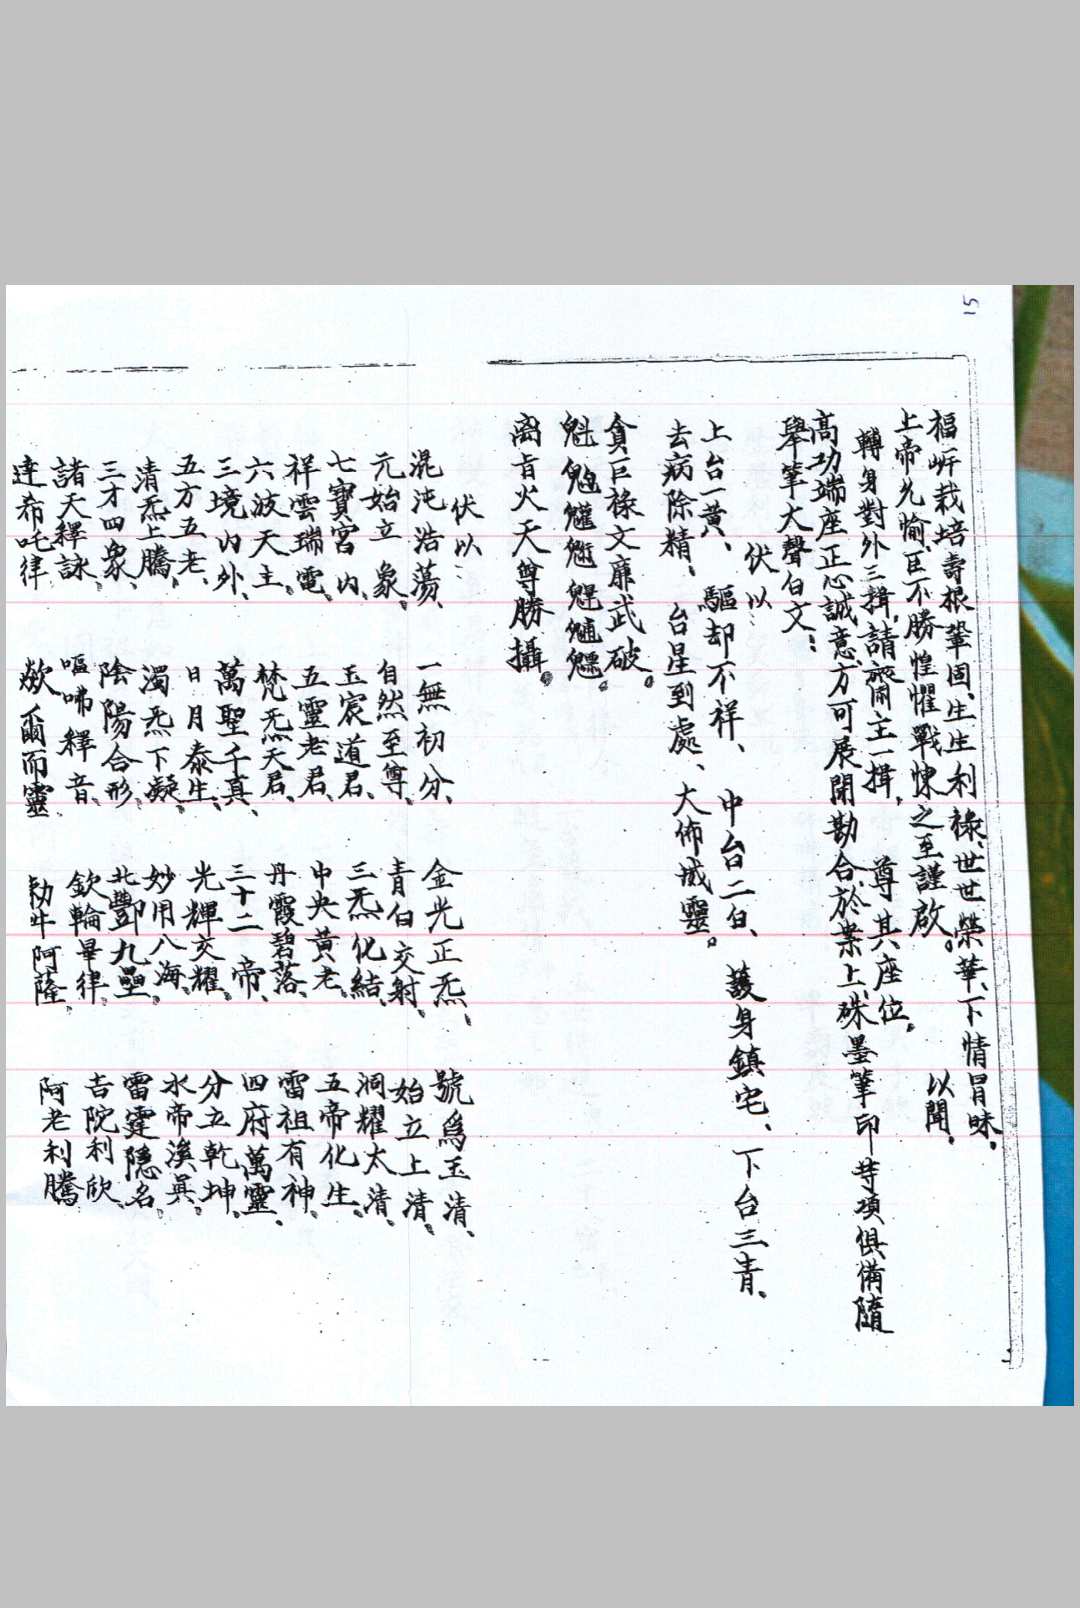 15
福㟁栽培壽根鞏固、生生利祿、世世榮華、下情冒昧。
以聞。
上帝允愉、臣不勝惶懼戰悚之至謹啟。
轉身對外三揖、請齋主一揖、尊其座位。
高功端座正心誠意、方可展開勘合、於業上、硃墨筆印等項俱俻隨
舉筆大聲白文：
伏以：
上台一黃、驅却不祥、中台二白、護身鎮宅、下台三青、
去病除精、台星到處、大佈威靈。
貪巨祿文廉武破。
魁𩲃䰢魓魒
离肓火天尊勝攝。
伏以：
混沌浩蕩、一無初分、金光正炁、號為玉清、
元始立象、自然至尊、青白交射、始立上清、
七寶宮內、玉宸道君、三炁化結、洞耀太清、
祥雲瑞電、五靈老君、中央黃老、五帝化生、
六波天主、梵炁天君、丹霞碧落、雷祖有神、
三境內外、萬聖千真、三十二帝、四府萬靈、
五方五老、日月泰生、光輝交耀、分立乾坤、
清炁上騰、濁炁下凝、妙用八海、水帝溟真、
三才四象、陰陽合形、北酆九壘、雷霆隱名、
諸天釋詠、嘔咈釋音、欽輪畢律、吉院利欣、
達希吒律、歘爾而靈、勃牛阿薩、阿老利騰